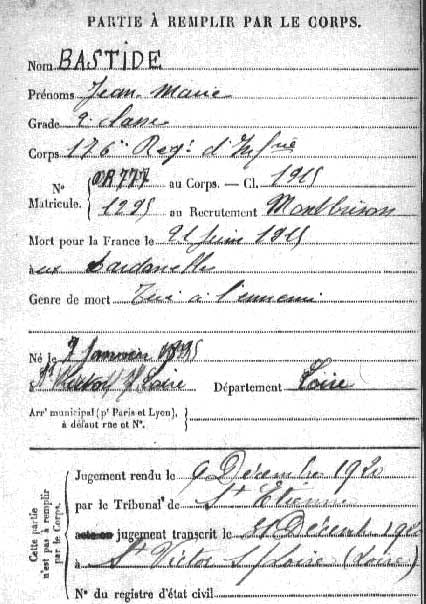 PARTIE À REMPLIR PAR LE CORPS.
Nom BASTIDE
Prénoms Jean Marie
Grade 2e classe
Corps 176e Regt d'Infrie
No Matricule. { 777 au Corps. — Cl. 1915
1295 au Recrutement Montbrison
Mort pour la France le 21 Juin 1915
aux Dardanelles
Genre de mort Tué à l'ennemi
Né le 7 Janvier 1895
St Victor s/ Loire Département Loire
Arrt municipal (pr Paris et Lyon), à défaut rue et No. {
Cette partie n'est pas à remplir par le Corps.
Jugement rendu le 9 Décembre 1920
par le Tribunal de St Etienne
acte ou jugement transcrit le Décemb 1920
à St Victor s/Loire (Loire)
No du registre d'état civil